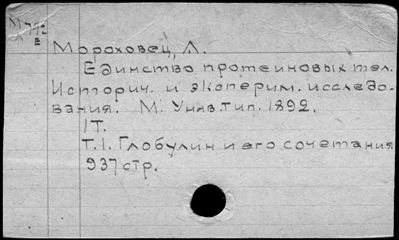 Мороховец, Л.
Единство протеиновых тел.
Историч. и эксперим. исследо-
вания. М. Унив. тип. 1892.
1Т.
Т.1. Глобулин и его сочетания
937 стр.